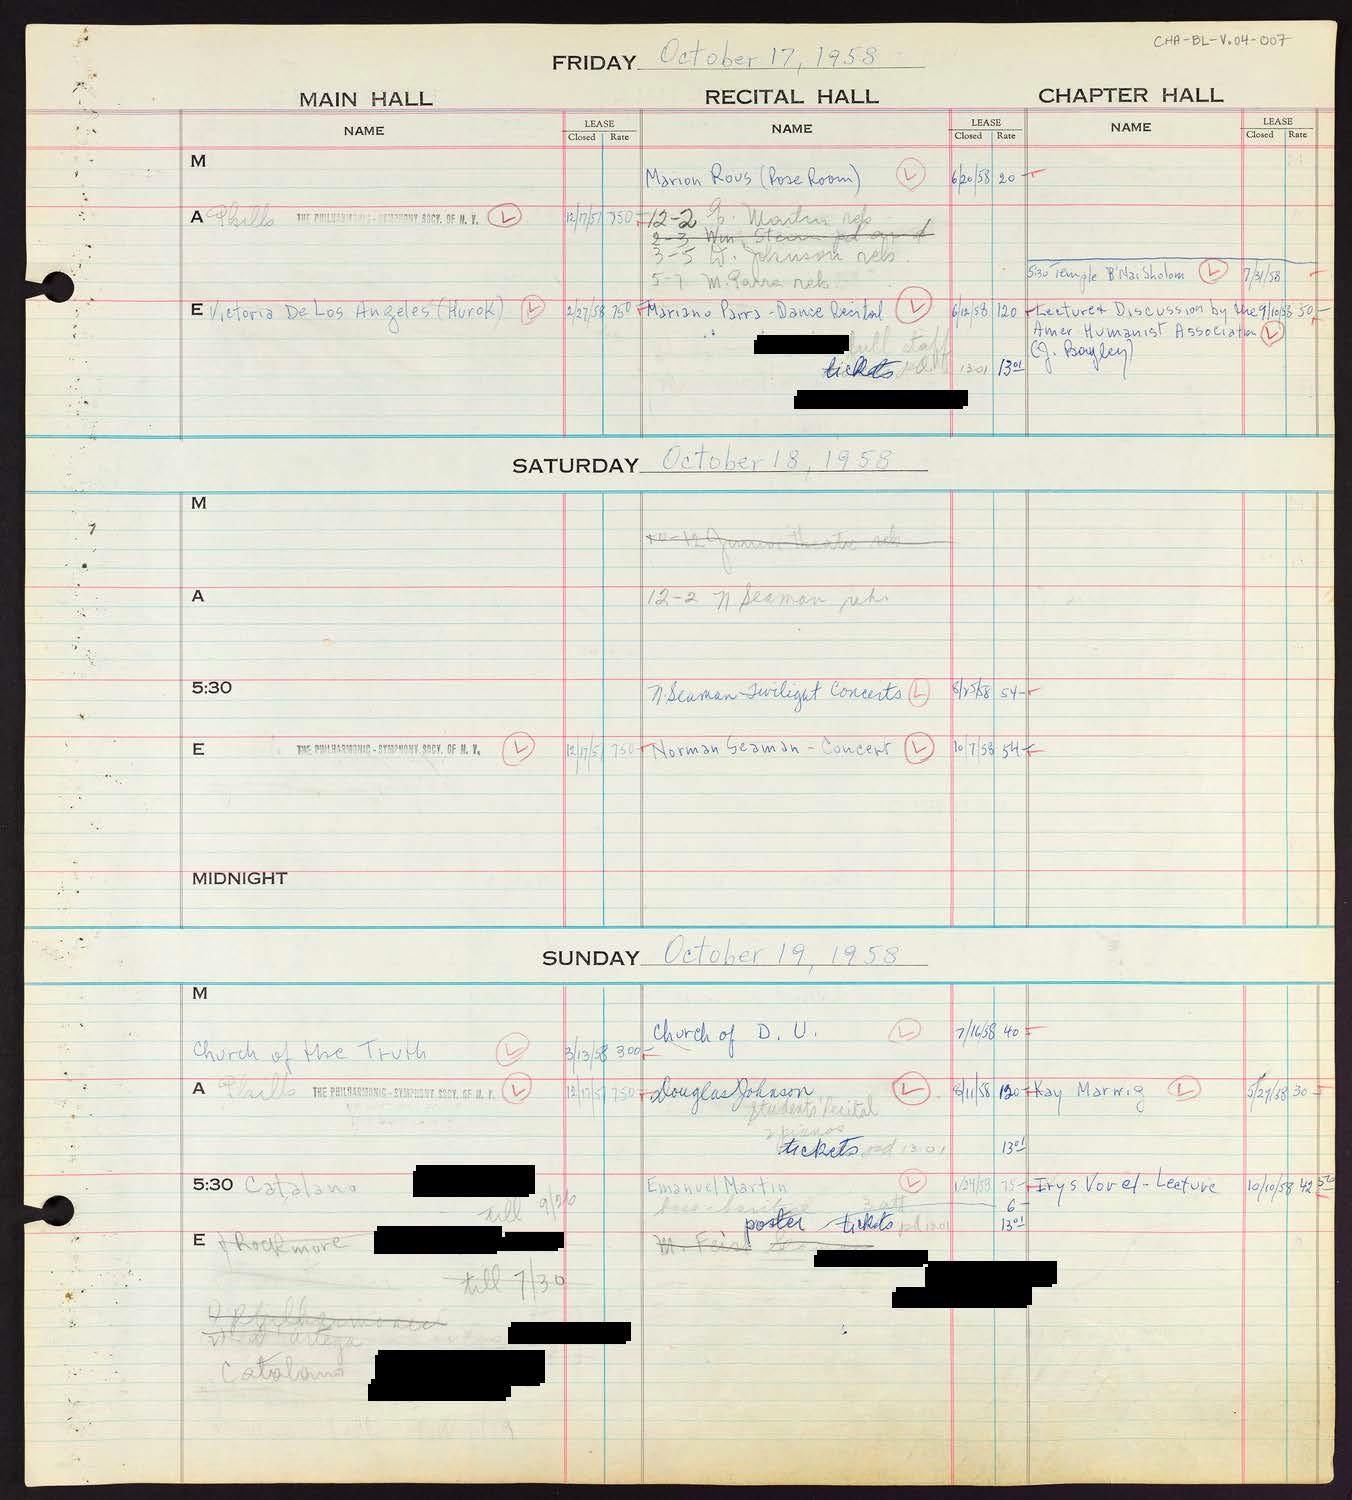 CHA-BL-V.04-007
FRIDAY October 17, 1958
MAIN HALL RECITAL HALL CHAPTER HALL
NAME LEASE Closed Rate NAME LEASE Closed Rate NAME LEASE Closed Rate
M
Marion Rous (Rose Room) L 6/20/58 20
A Philh THE PHILHARMONIC-SYMPHONY SOCY. OF N. Y. L 12/17/57 750 12-2 E. Martin reh
2-3 Wm.
3-5 D. Johnson reh.
5-7 M. Parra reh.
5:30 Temple B'Nai Sholom L 7/31/58
E Victoria De Los Angeles (Hurok) L 2/27/58 750 Mariano Parra - Dance Recital L 6/12/58 120 Lecture & Discussion by the 9/10/58 50
Amer Humanist Association L
full staff
(J. Bayley)
tickets pd 13.01 13 01
SATURDAY October 18, 1958
M
10-12 Junior theatre reh
A 12-2 N Seaman reh.
5:30 N. Seaman-Twilight Concerts L 8/25/58 54
E THE PHILHARMONIC-SYMPHONY SOCY. OF N. Y. L 12/17/57 750 Norman Seaman - Concert L 10/7/58 54
MIDNIGHT
SUNDAY October 19, 1958
M
Church of D. U. L 7/16/58 40
Church of the Truth L 3/13/58 300
A Philh THE PHILHARMONIC-SYMPHONY SOCY. OF N. Y. L 12/17/57 750 Douglas Johnson L 8/11/58 120 Kay Marwig L 5/27/58 30
Students' Recital
2 pianos
tickets pd 13.01 13 01
5:30 Catalano Emanuel Martin L 1/24/58 75 Irys Vorel - Lecture 10/10/58 42 50
till 9/20 bass-baritone 3 att 6
poster tickets pd 13.01 13 01
E Rockmore M.
till 7/30
Philharmonic
Catalano